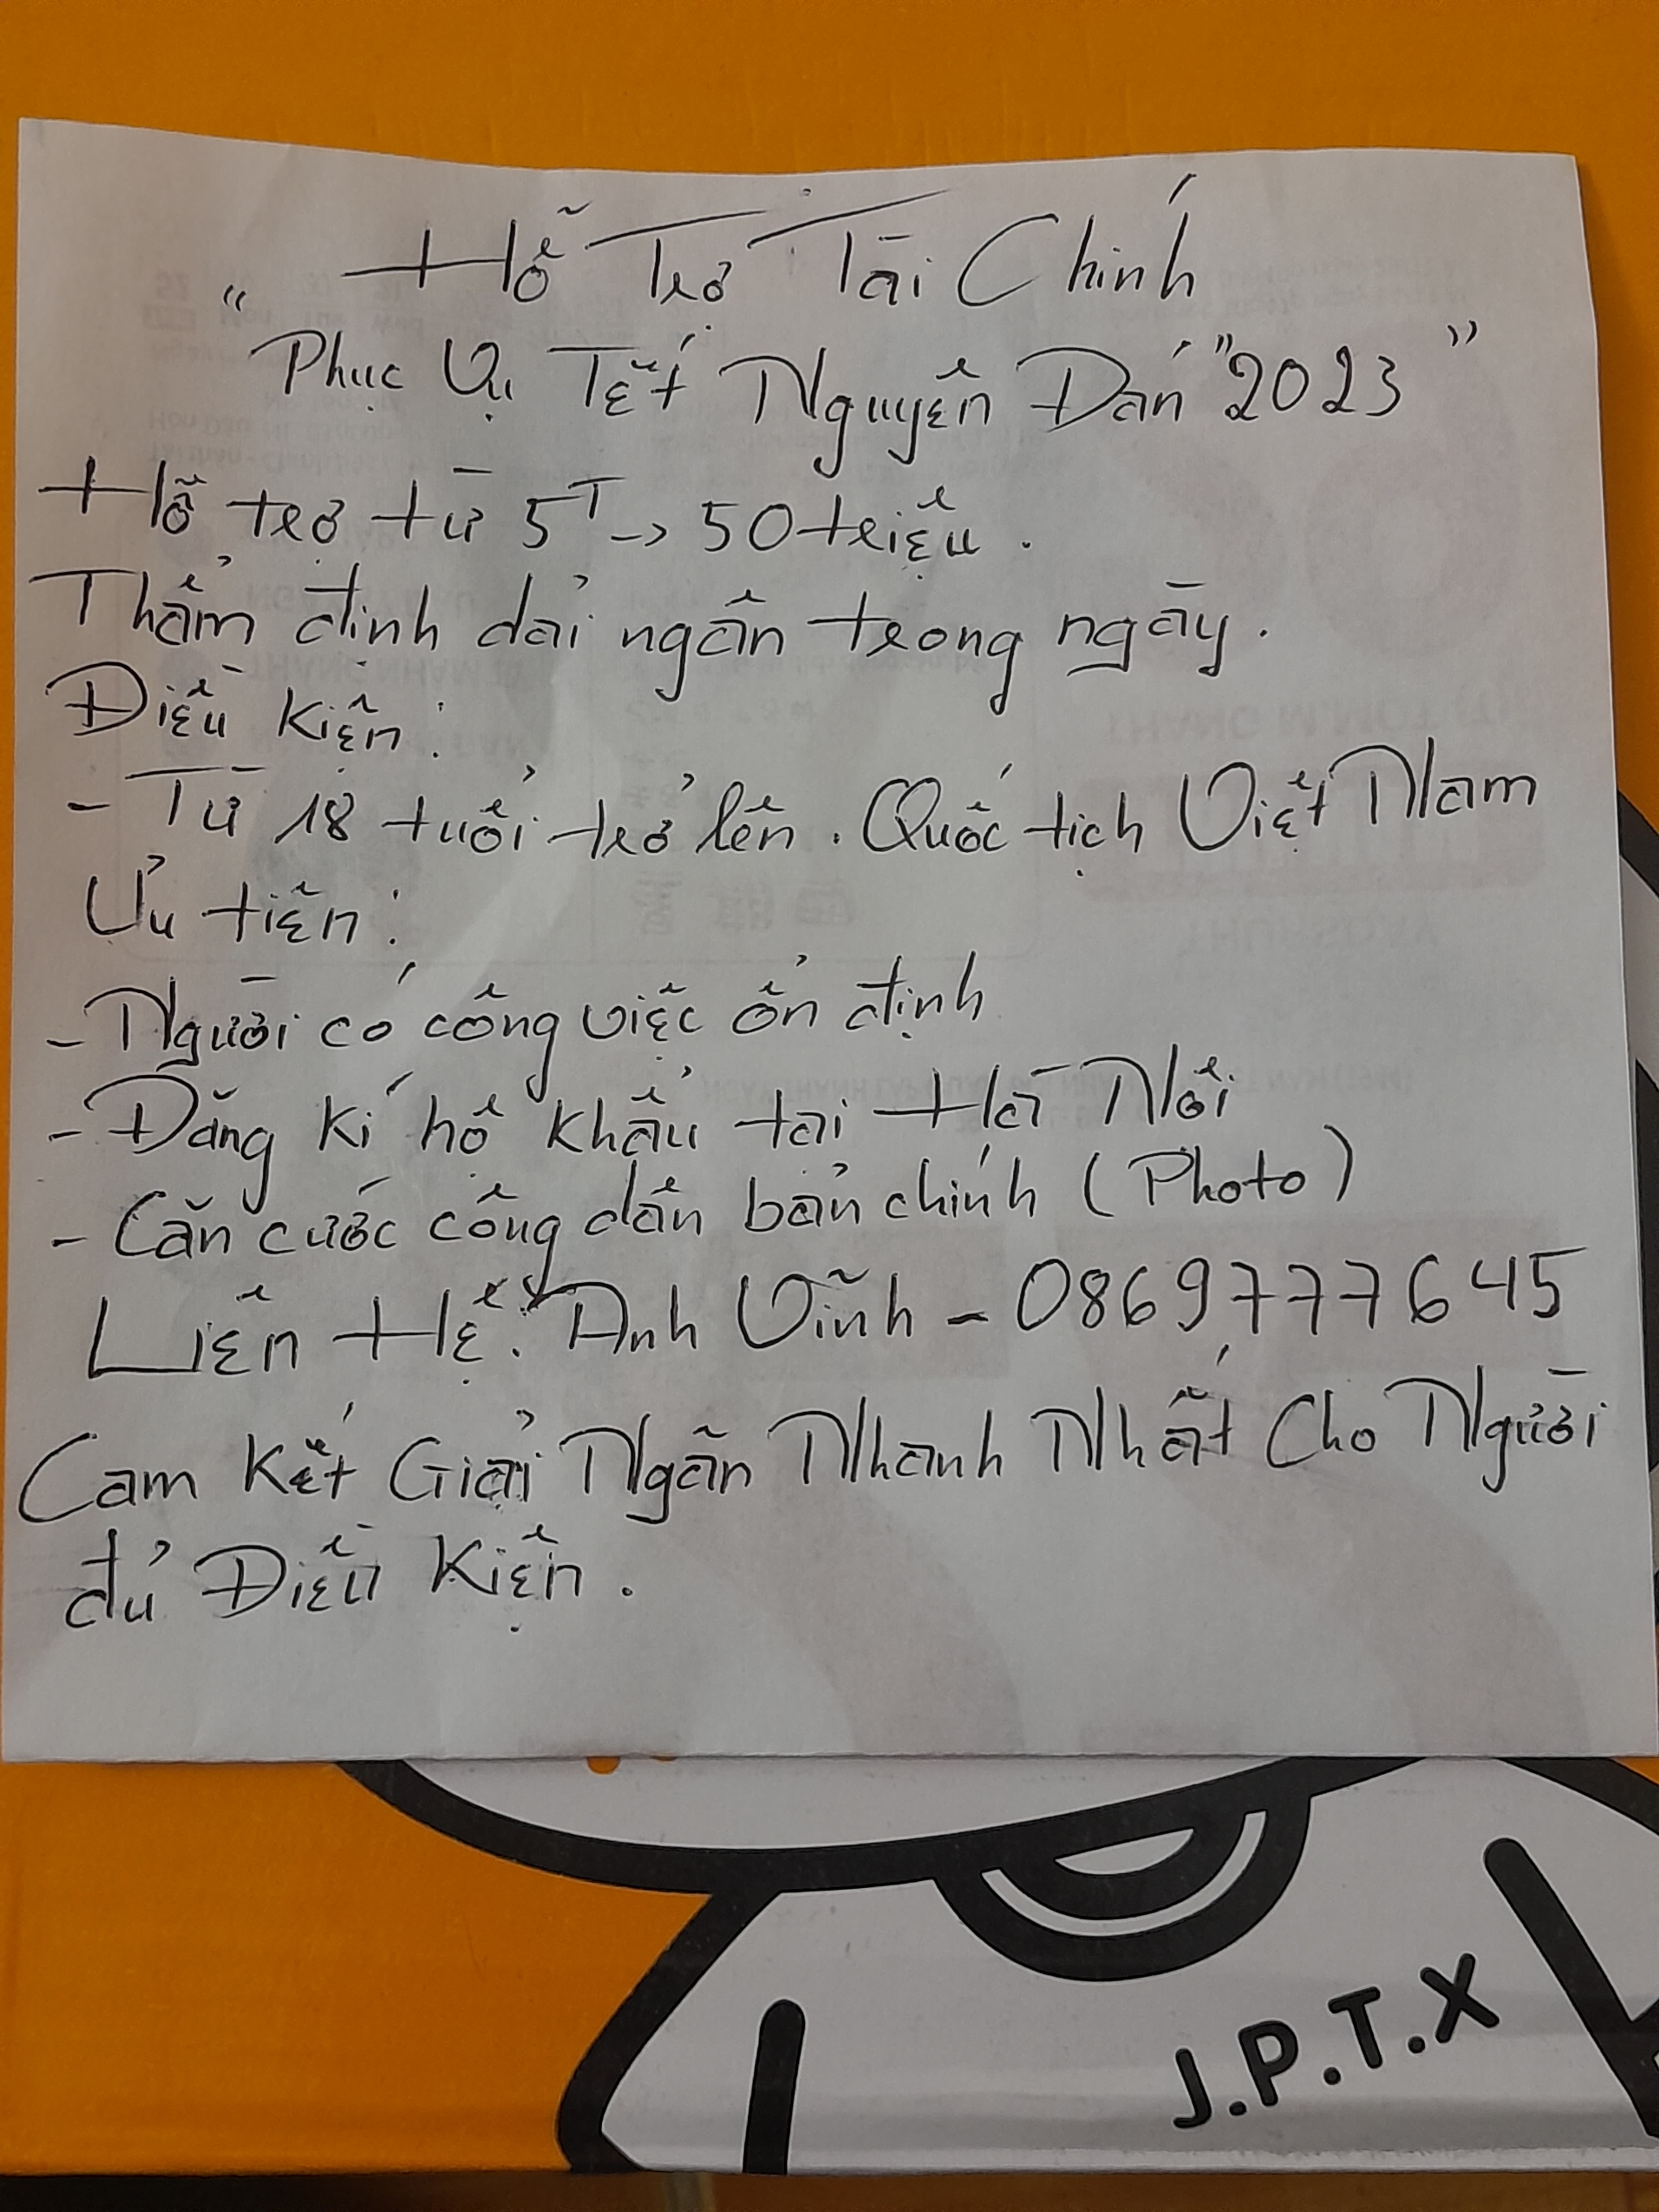 Hỗ Trợ Tài Chính
"Phục Vụ Tết Nguyên Đán "2023"
Hỗ trợ từ 5T -> 50 triệu.
Thẩm định dải ngân trong ngày.
Điều kiện:
- Từ 18 tuổi trở lên. Quốc tịch Việt Nam
Ưu tiên:
- Người có công việc ổn định
- Đăng kí hộ khẩu tại Hà Nội
- Căn cước công dân bản chính (Photo)
Liên Hệ: Anh Vĩnh - 0869777645
Cam Kết Giải Ngân Nhanh Nhất Cho Người
đủ Điều Kiện.
J.P.T.X